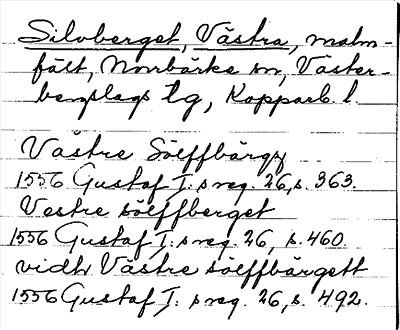 Silvberget, Västra, malm-
fält, Norrbärke sn, Väster-
bergslags tg, Kopparb. l.
Västre Sölffbärgz
1556 Gustaf I:s reg. 26, s. 363.
Vestre sölffberget
1556 Gustaf I:s reg. 26, s. 460.
vidh Västre sölffbärgett
1556 Gustaf I:s reg. 26, s. 492.